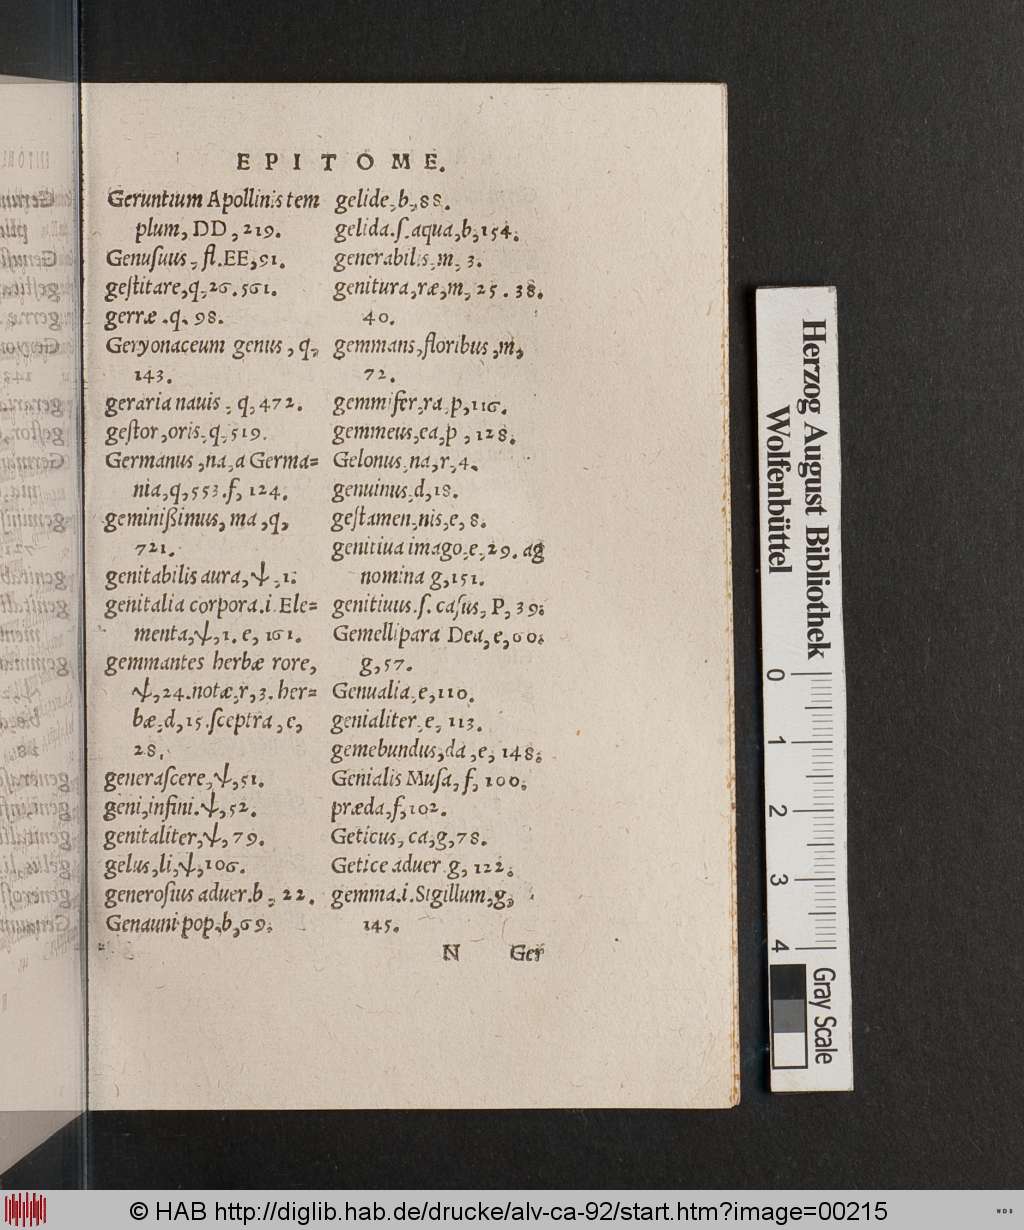 EPITOME.
Geruntium Apollinis tem
plum, DD, 219.
Genuſuus, fl. EE, 91.
geſtitare, q, 26. 561.
gerræ. q. 98.
Geryonaceum genus, q,
143.
geraria nauis, q, 472.
geſtor, oris, q, 519.
Germanus, na, a Germa=
nia, q, 553. f, 124.
geminißimus, ma, q,
721.
genitabilis aura, ψ, 1.
genitalia corpora. i. Ele=
menta, ψ, 1. e, 161.
gemmantes herbæ rore,
ψ, 24. notæ, r, 3. her=
bæ, d, 15. ſceptra, e,
28.
generaſcere, ψ, 51.
geni, infini. ψ, 52.
genitaliter, ψ, 79.
gelus, li, ψ, 106.
generoſius aduer. b, 22.
Genauni pop. b, 69.
gelide, b, 88.
gelida. ſ. aqua, b, 154.
generabilis, m, 3.
genitura, ræ, m, 25. 38.
40.
gemmans, floribus, m,
72.
gemmifer, ra, p, 116.
gemmeus, ea, p, 128.
Gelonus, na, r, 4.
genuinus, d, 18.
geſtamen, nis, e, 8.
genitiua imago, e, 29. ag
nomina g, 151.
genitiuus. ſ. caſus, P, 39.
Gemellipara Dea, e, 60.
g, 57.
Genualia, e, 110.
genialiter, e, 113.
gemebundus, da, e, 148.
Genialis Muſa, f, 100.
præda, f, 102.
Geticus, ca, g, 78.
Getice aduer. g, 122.
gemma. i. Sigillum, g,
145.
N Ger
Herzog August Bibliothek
Wolfenbüttel
0 1 2 3 4
Gray Scale
© HAB http://diglib.hab.de/drucke/alv-ca-92/start.htm?image=00215